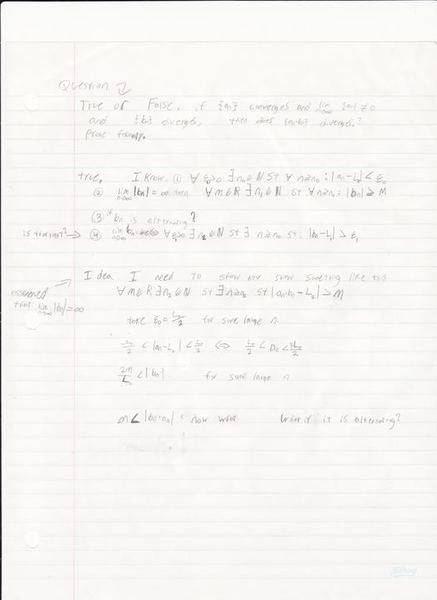 Question
True or False, if {an} converges and lim n→∞ {an} ≠ 0
and {bn} diverges, then does {an bn} diverges?
prove formally.
true, I know, ① ∀ ε₀>0 ∃ n₀∈N st ∀ n≥n₀ : |an-L₀| < ε₀
② lim n→∞ |bn| = ∞ then ∀M∈R ∃ n₁∈N st ∀ n≥n₁ : |bn| ≥ M
③ if bn is alternating?
is this right? → ④ lim n→∞ ∀ε₁>0 ∃ n₂∈N st ∃ n≥n₂ st: |bn-L₁| > ε₁
Idea I need to show something like this
assumed that lim n→∞ |bn| = ∞
∀M∈R st |an bn - L₂| > M
take ε₀ = L₀/2 for some large n.
< |an-L₀| < L₀/2 ⇔ L₀/2 <
2M/L < |bn| for some large n
M < |bn·an| now what What if it is alternating?